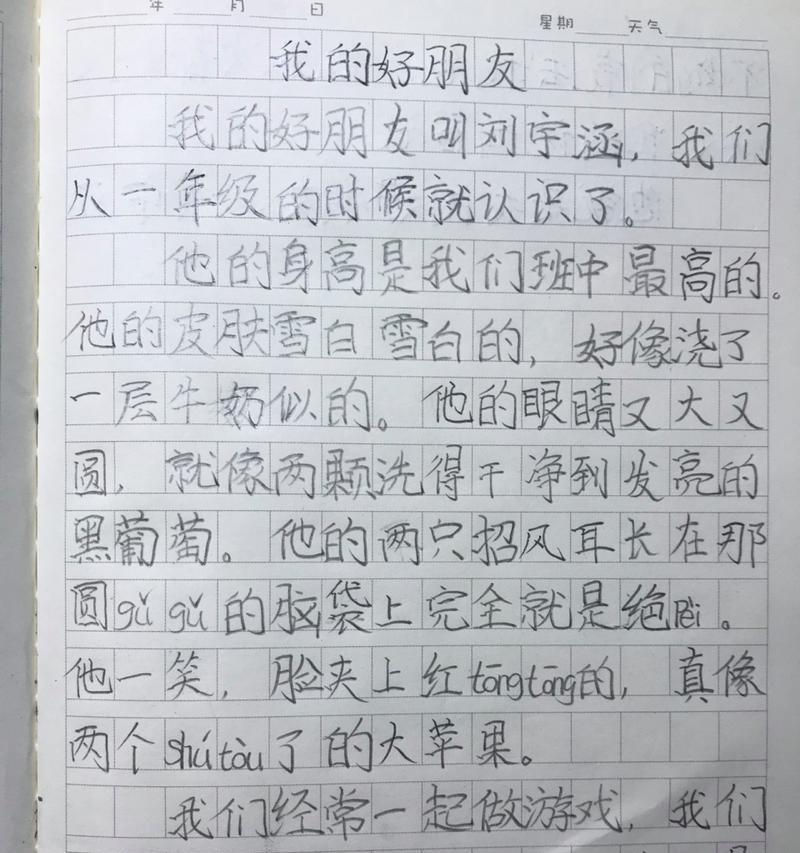 年 月 日 星期 天气
我的好朋友
我的好朋友叫刘宇涵，我们
从一年级的时候就认识了。
他的身高是我们班中最高的。
他的皮肤雪白雪白的，好像浇了
一层牛奶似的。他的眼睛又大又
圆，就像两颗洗得干净到发亮的
黑葡萄。他的两只招风耳长在那
圆gǔ gǔ的脑袋上完全就是绝pèi。
他一笑，脸夹上红tōngtōng的，真像
两个shútòu了的大苹果。
我们经常一起做游戏，我们